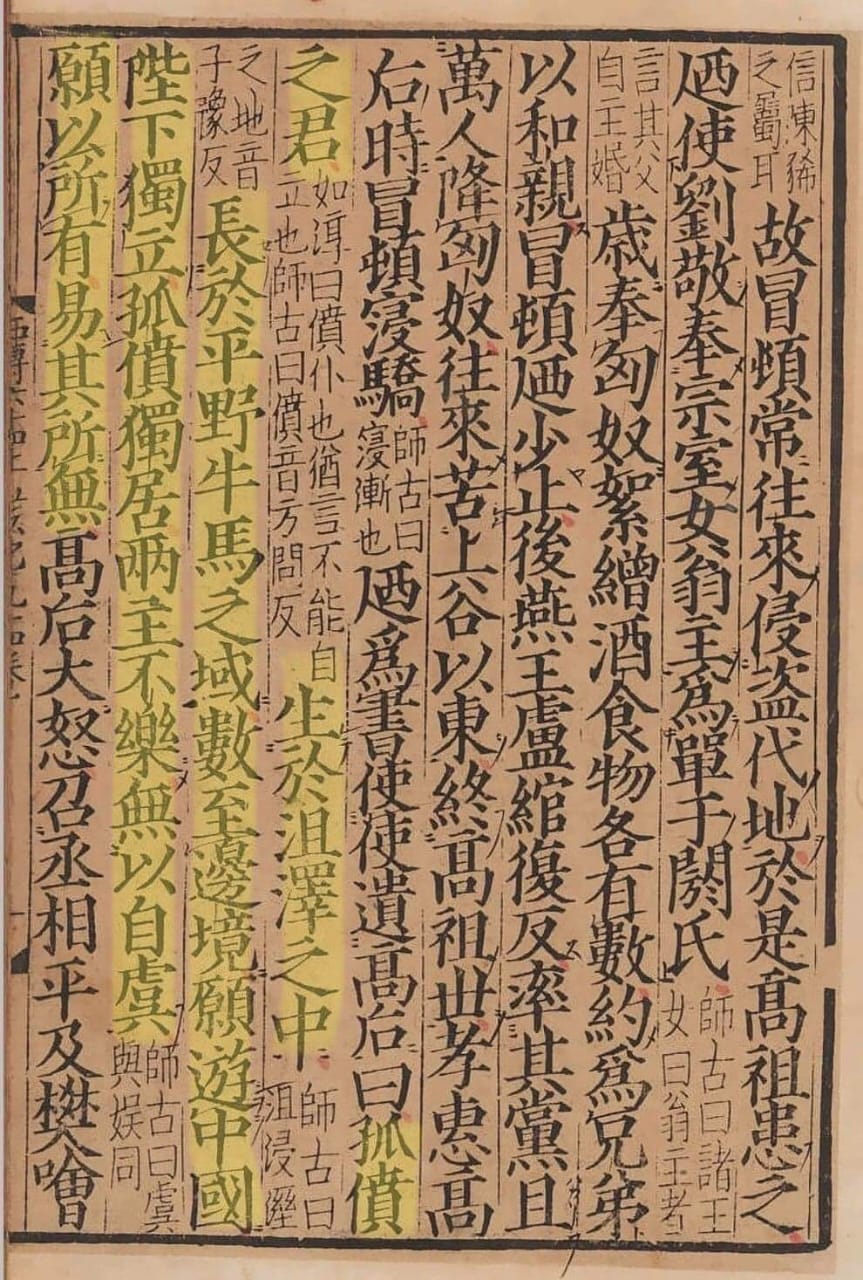 信陳豨之屬耳故冒頓常往來侵盗代地於是髙祖患之
廼使劉敬奉宗室女翁主爲單于閼氏師古曰諸王女曰翁主者
言其父自主婚歳奉匈奴絮繒酒食物各有數約爲兄弟
以和親冒頓廼少止後燕王盧綰復反率其黨且
萬人降匈奴往來苦上谷以東終髙祖世孝惠髙
后時冒頓寖驕師古曰寖漸也廼爲書使使遺髙后曰孤僨
之君如淳曰僨仆也猶言不能自立也師古曰僨音方問反生於沮澤之中師古曰沮浸溼
之地音子豫反長於平野牛馬之域數至邊境願遊中國
陛下獨立孤僨獨居兩主不樂無以自虞師古曰虞與娱同
願以所有易其所無髙后大怒召丞相平及樊噲